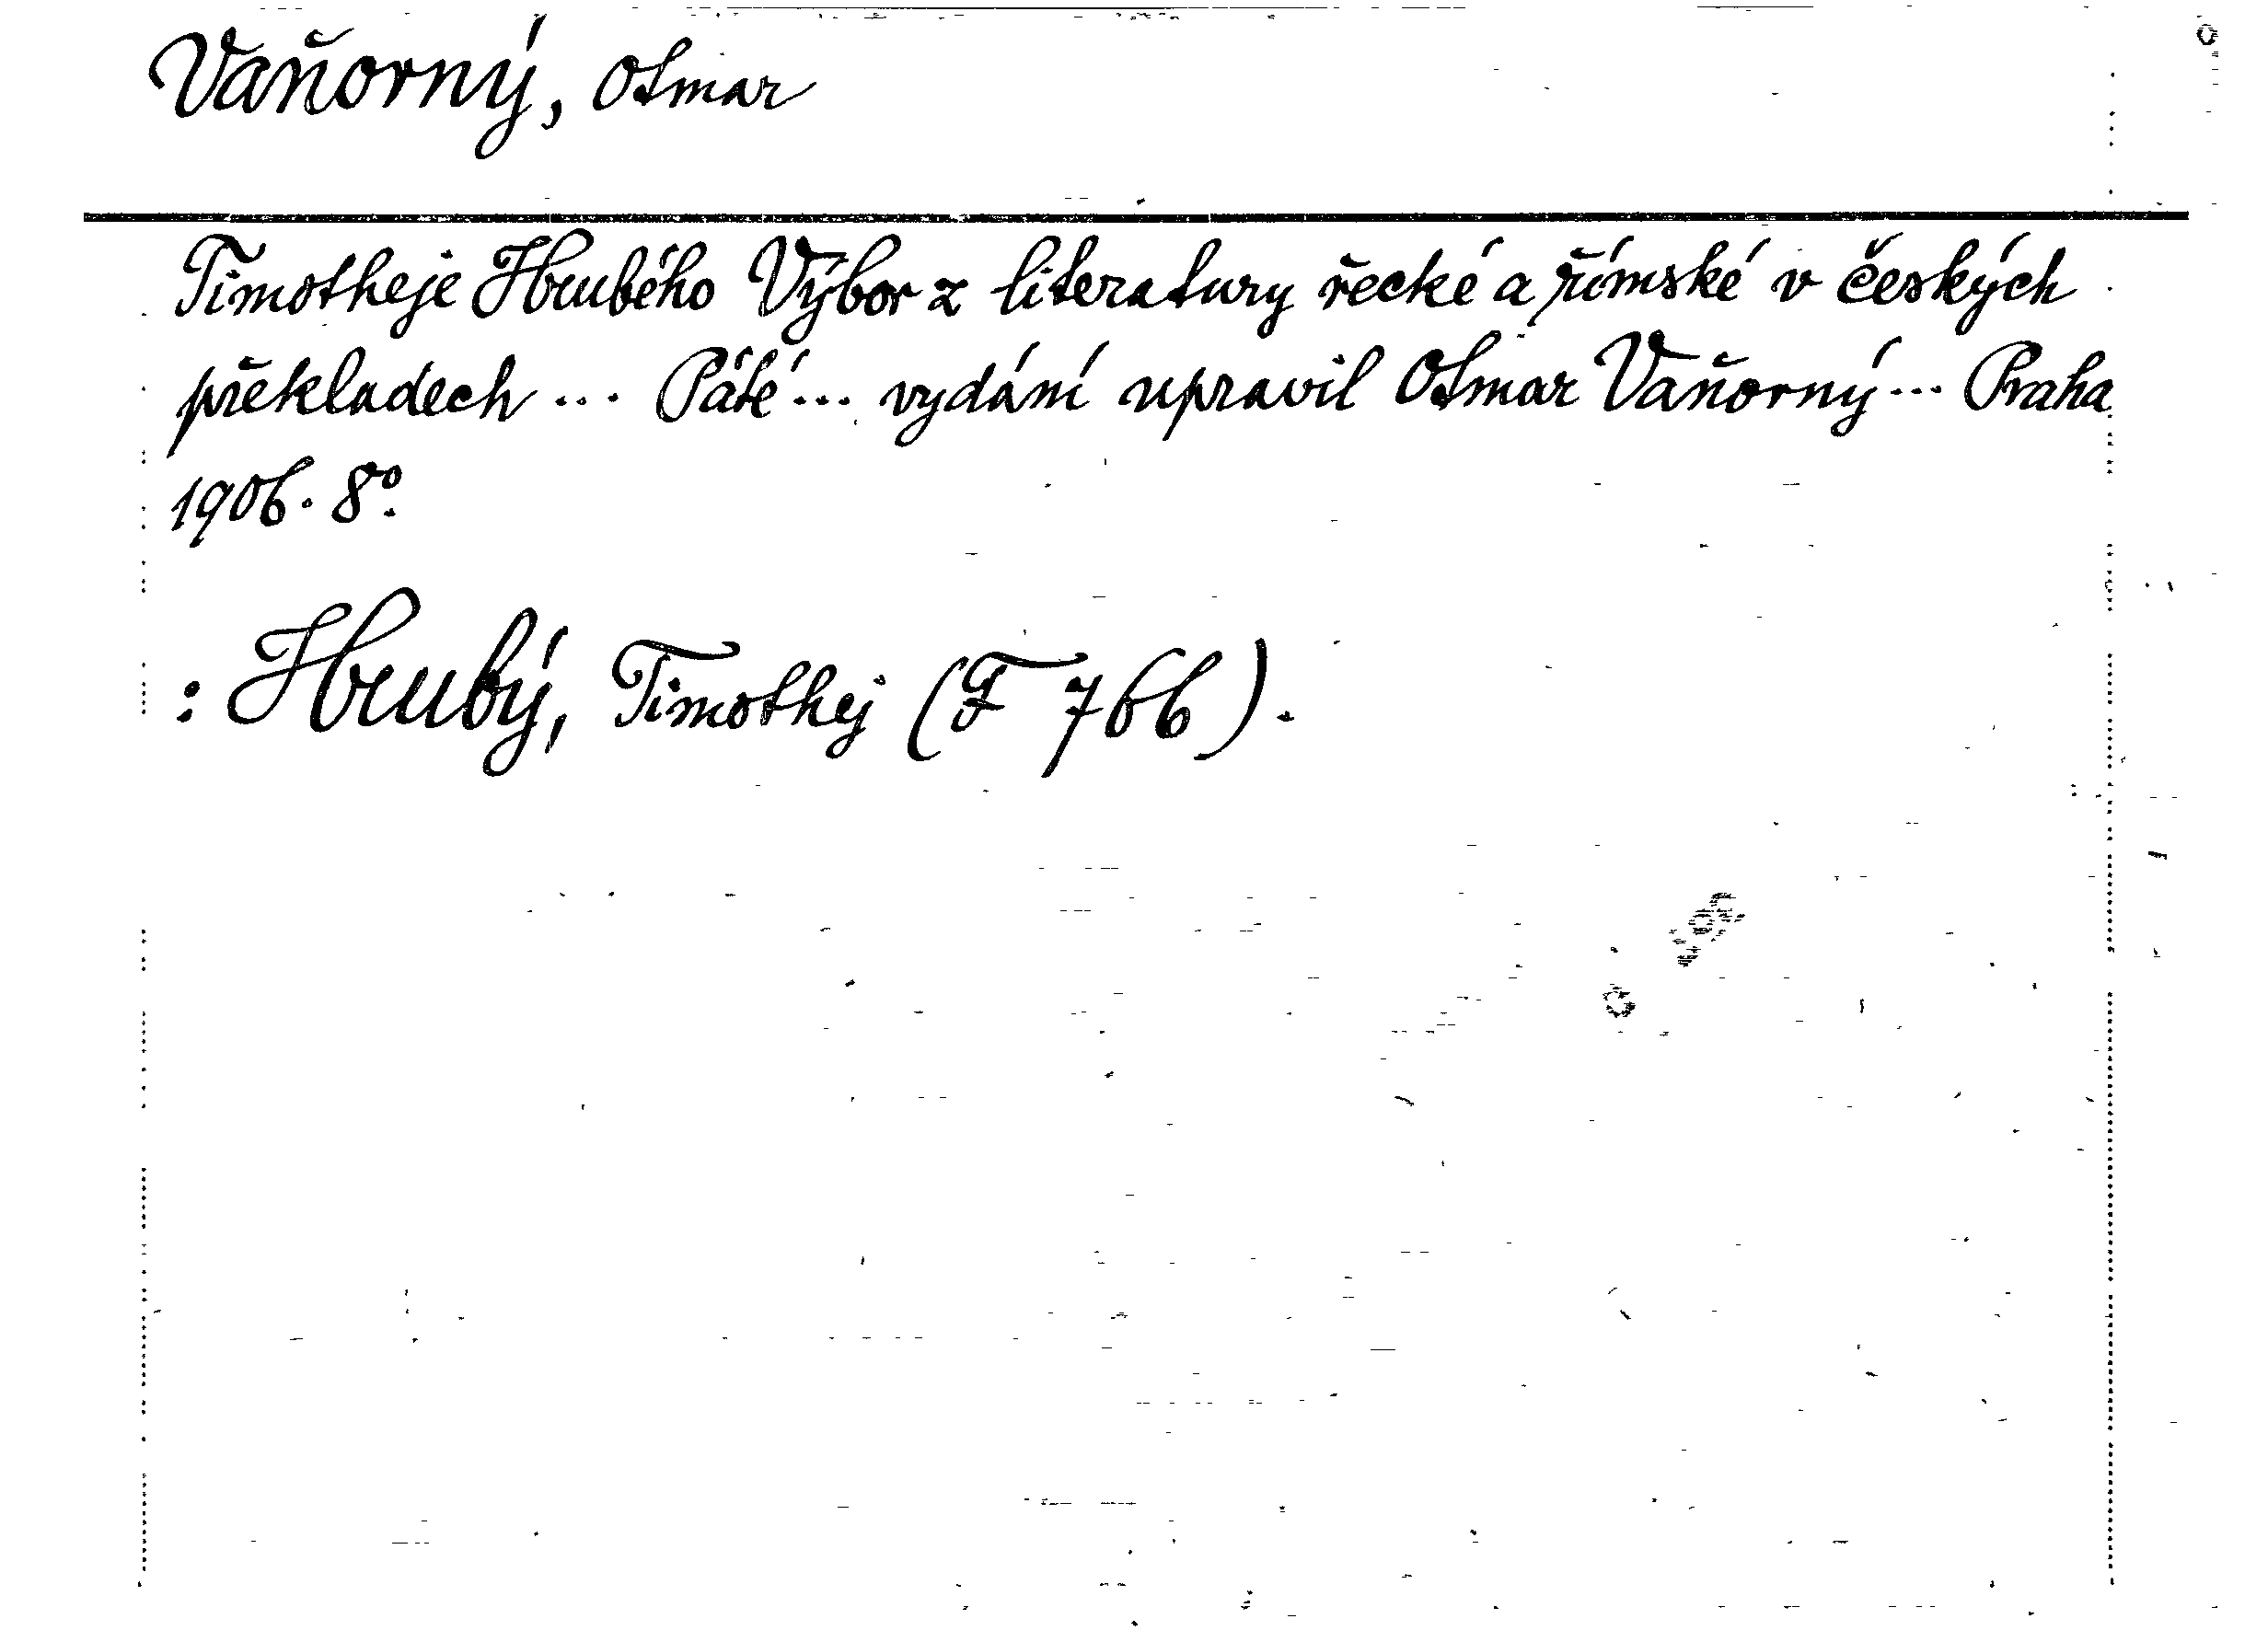 Vaňorný, Otmar
Timotheje Hrubého Výbor z literatury řecké a římské v českých
překladech ... Páté ... vydání upravil Otmar Vaňorný ... Praha
1906. 8º.
: Hrubý, Timothej (F 766).